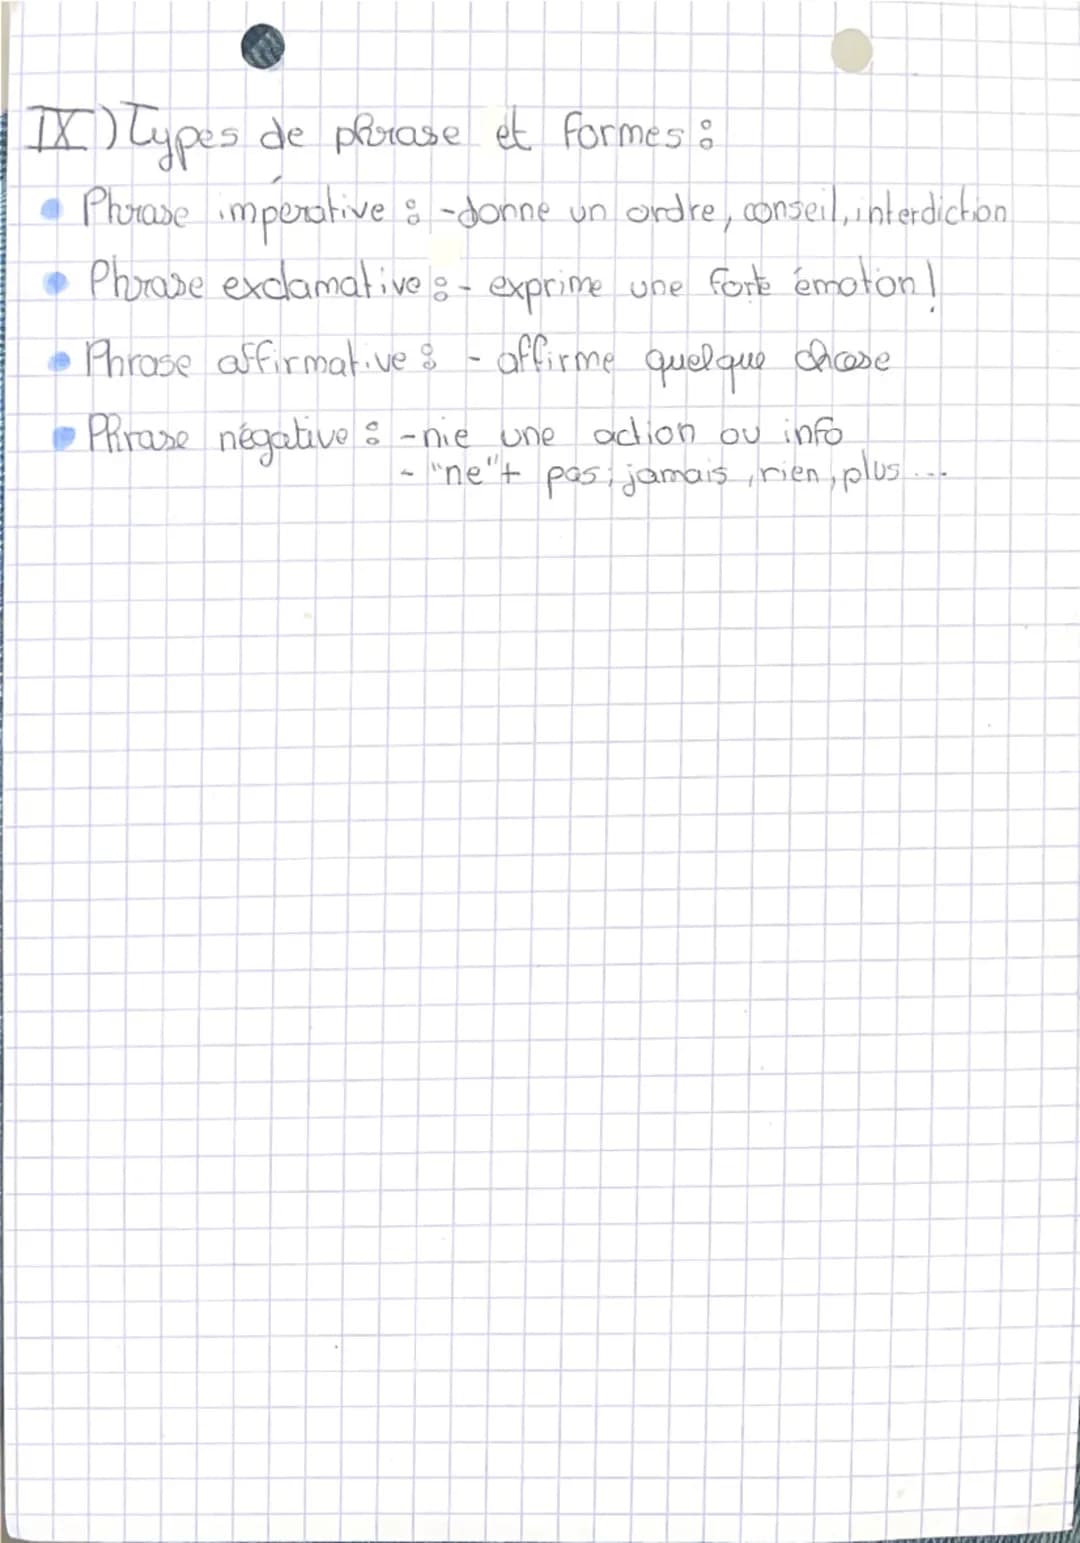 IX) Types de phrase et formes :
Phrase impérative : -donne un ordre, conseil, interdiction
Phrase exclamative : - exprime une forte émotion !
Phrase affirmative : - affirme quelque chose
Phrase négative : -nie une action ou info
- "ne"+ pas; jamais, rien, plus ...